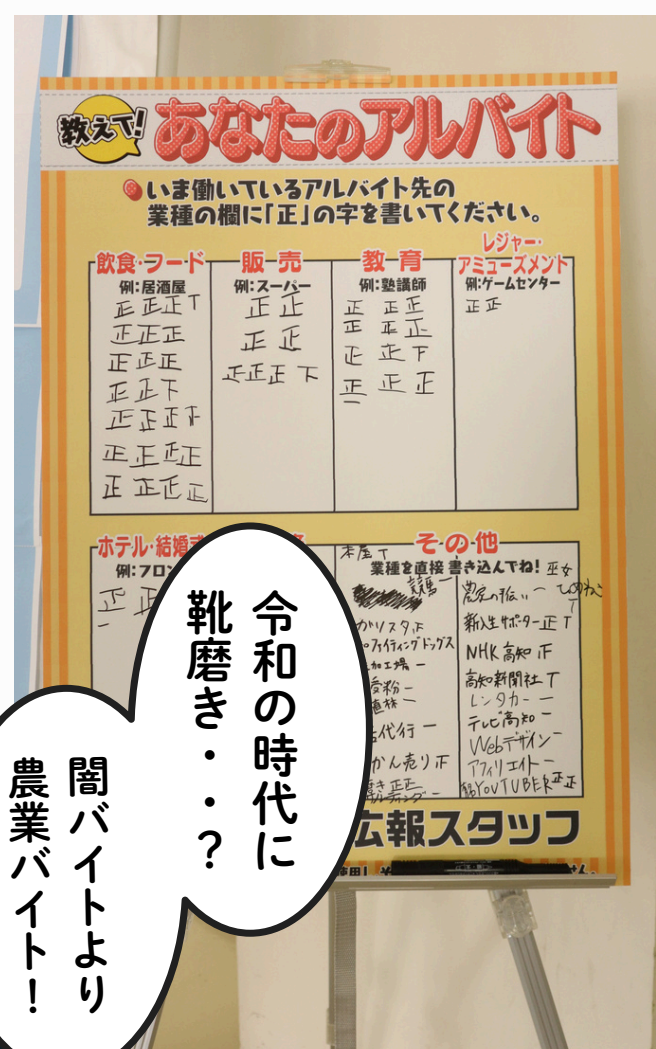 教えて!
あなたのアルバイト
いま働いているアルバイト先の
業種の欄に「正」の字を書いてください。
飲食・フード
例:居酒屋
正 正 正 T
正 正 正
正 正 正
正 正 下
正 正 正
正 正 正 正
正 正 正 正
販 売
例:スーパー
正 正
正 正
正 正 正 下
教 育
例:塾講師
正 正 正
正 正 正
正 正 下
正 正 正
一
レジャー・
アミューズメント
例:ゲームセンター
正 正
ホテル・結婚
例:フロン
正 正
一
その他
業種を直接書き込んでね!
本屋 T
競馬 一
ガリスタ 下
ファイティングドッグス
加工場 一
受粉 一
直林 一
代行 一
かん売り 正
磨き 正 正
巫女
農家の手伝い 一
新入生サポーター 正 T
NHK 高知 正
高知新聞社 T
レンタカー 一
テレビ高知 一
Webデザイン 一
アフィリエイト 一
YOUTUBER 正 正
広報スタッフ
令和の時代に
靴磨き・・?
闇バイトより
農業バイト!